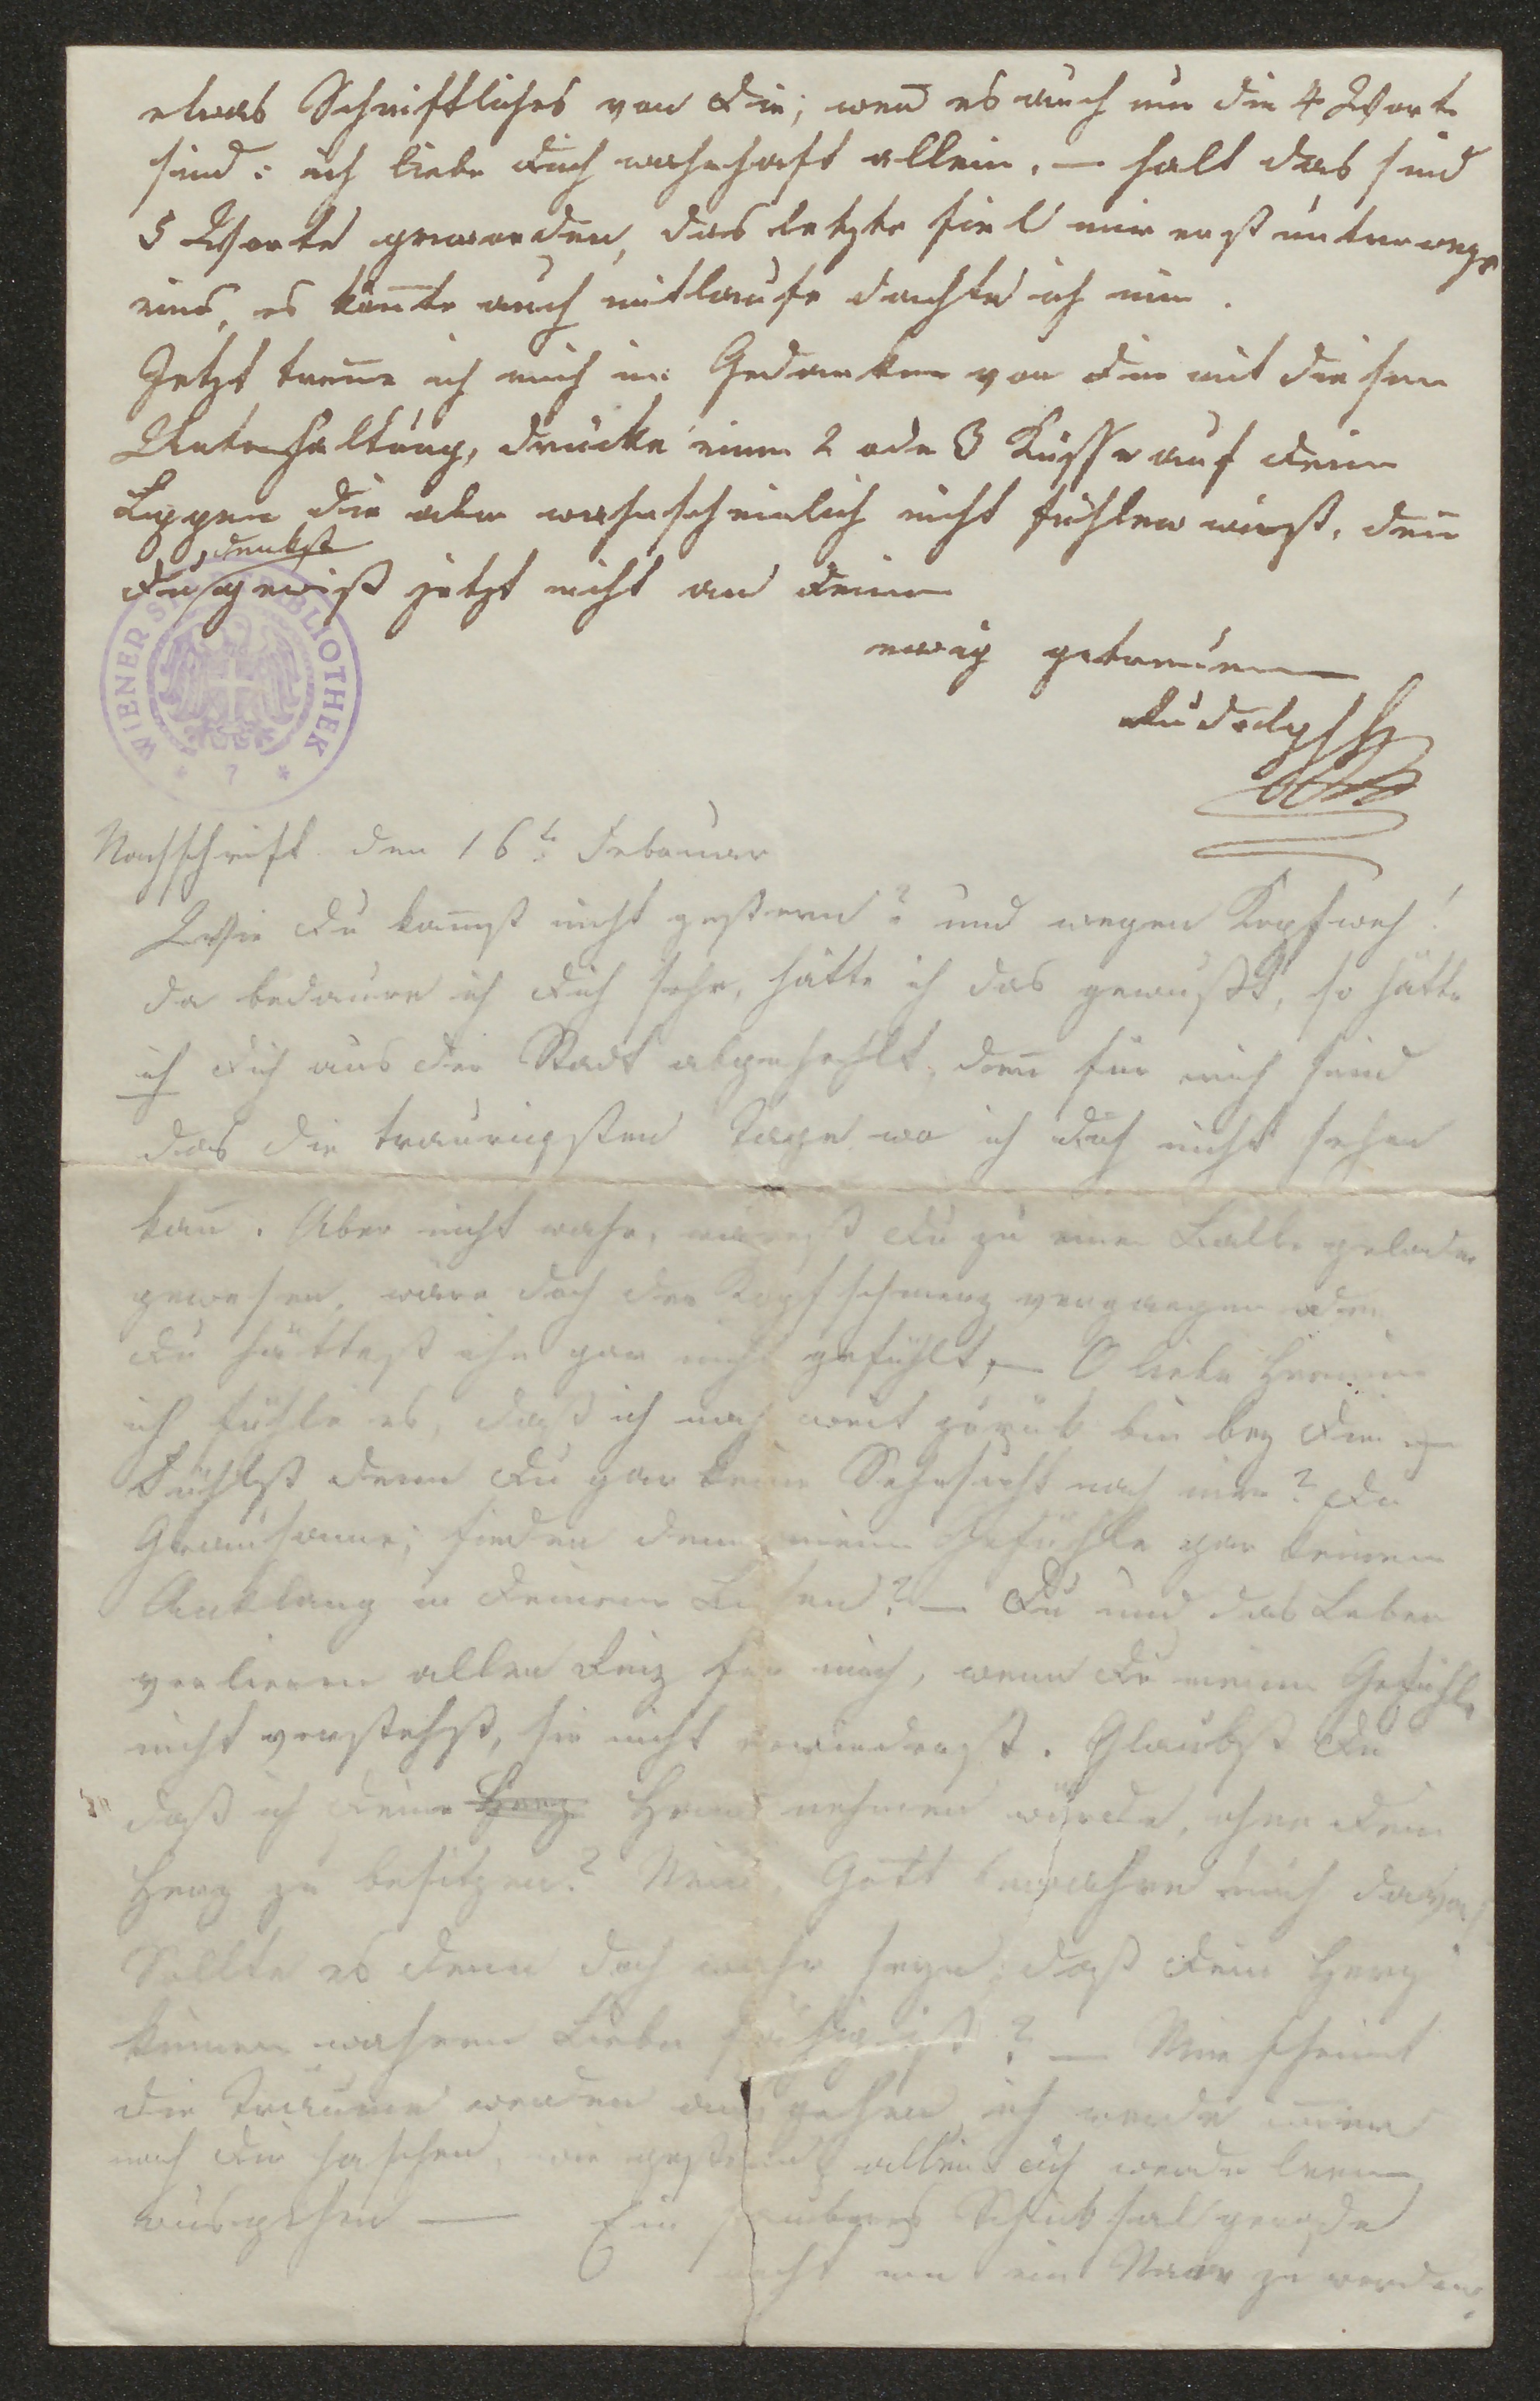 etwas Schriftliches von Dir; weñ es auch nur die 4 Worte
sind: ich liebe Dich wahrhaft allein. — halt das sind
5 Worte geworden, das letzte fiel mir erst unterwegs
eins, es kon̄te auch mitlaufe dachte ich mir.
Jetzt tren̄e ich mich in Gedanken von Dir mit diesen
Unterhaltung, drücke einen 2 oder 3 Küsse auf Deine
Lippen die aber wahrscheinlich nicht fühlen wirst, den̄
denkst
Du gewiß jetzt nicht an Deinen
ewig getreuen
Rudolph
WIENER STADTBIBLIOTHEK
* 7 *
Nachschrift den 16t: Februar
Wie Du kam̄st nicht gestern? und wegen Kopfweh!
da bedaure ich Dich sehr, hätte ich das gewußt, so hätte
ich Dich aus der Stadt abgehohlt, den̄ für mich sind
das die traurigsten Tage wo ich Dich nicht sehen
kan̄. Aber nicht wahr, wärest Du zu einen Balle geladen
gewesen, wäre doch der Kopfschmerz vergangen oder
Du hättest ihn gar nicht gefühlt, — O liebe Hermine
ich fühle es, daß ich noch weit zurück bin bey Dir
Fühlst denn Du gar keine Sehnsucht nach mir? Du
Grausame; finden denn meine Gefühle gar keinen
Anklang in Deinem Busen? — Du und das Leben
verlieren allen Reiz für mich, wenn Du meine Gefühle
nicht verstehst, sie nicht erwiederst. Glaubst Du
daß ich Deine Herz Hand nehmen würde, ohne Dein
Herz zu besitzen? Nein, Gott bewahre mich davor,
Sollte es denn doch wahr seyn, daß Dein Herz
keiner wahren Liebe fähig ist? — Mir scheint
die Träume werden ausgehen ich werde im̄er
nach Dir haschen, wie gestern, allein ich werde leer
ausgehen — Ein sauberes Schicksal gerade
recht um ein Narr zu werden.